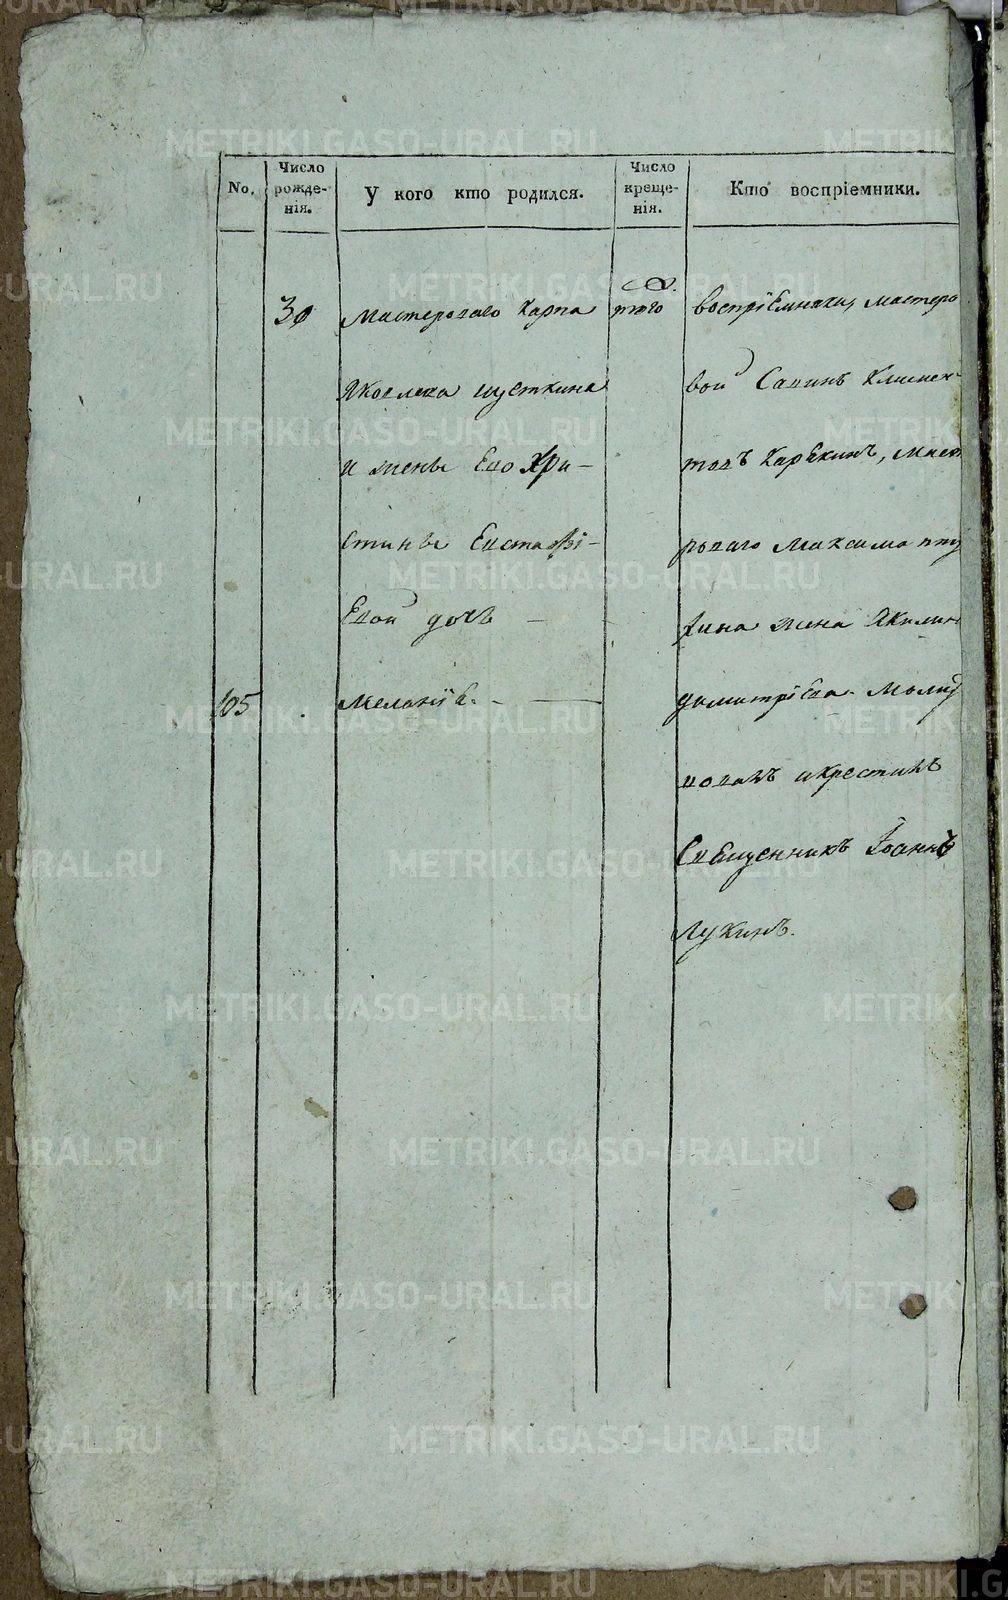 No.
Число рожде-нія.
У кого кто родился.
Число креще-нія.
Кто воспріемники.
30
Мастероваго Карпа
Яковлева Шусткина
и жены Его Хри-
стины Евстафі-
Евой дочь
105
Меланіѣ.
того
воспріЕмники, мастеро
вой Савинъ Климен-
товъ Карѣкинъ, масте
роваго Максима
жена Акилин
димитріЕва. Молит
вовалъ икрестилъ
Священникъ Іоаннъ
Лукинъ.
METRIKI.GASO-URAL.RU